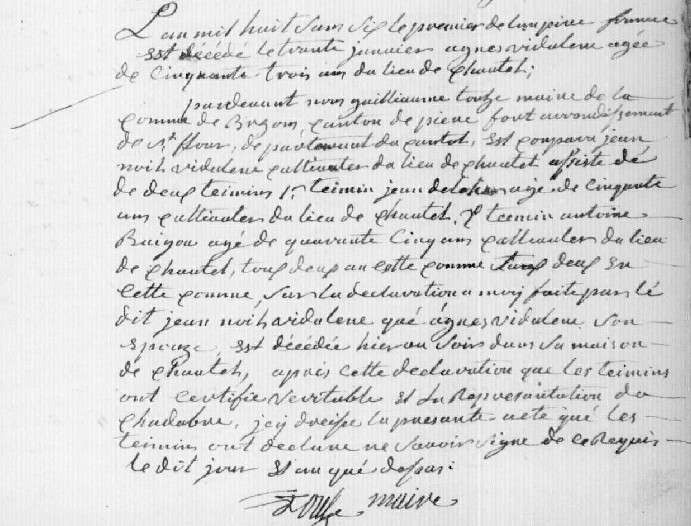 L'an mil huit sans sis le premier de l'ampire franse
est décédé le trante janvier agnes vidalene agée
de Cinquante trois ans du lieu de Chautel;
pardevant nous guilliaume touze maire de la
comme de Bregons, canton de piere fort arrondissement
de St flour, departemant du cantal, est conparu jean
noit vidalene cultivater du lieu de Chautel assiste dé
de deux teimins 1r teimin jean agé de cinquante
ans cultivater du lieu de Chautel, 2e teemin antoine
Baigou agé de quarante Cinq ans cultivater du lieu
de Chautel, tous deux an cette comme tous deux en
cette comme, sur la declaration a moy faite par lé
dit jean noit vidalene qué àgnes vidalene son
epouze est décédée hier au soir dans sa maison
de Chautel, aprés cette declaration que les teimins
ont certifié veritable et du
jey dreisse la presante acte qué les
teimins ont declaré ne savoir signe de ce Requis
le dit jour et an qué desus:
Touze maire